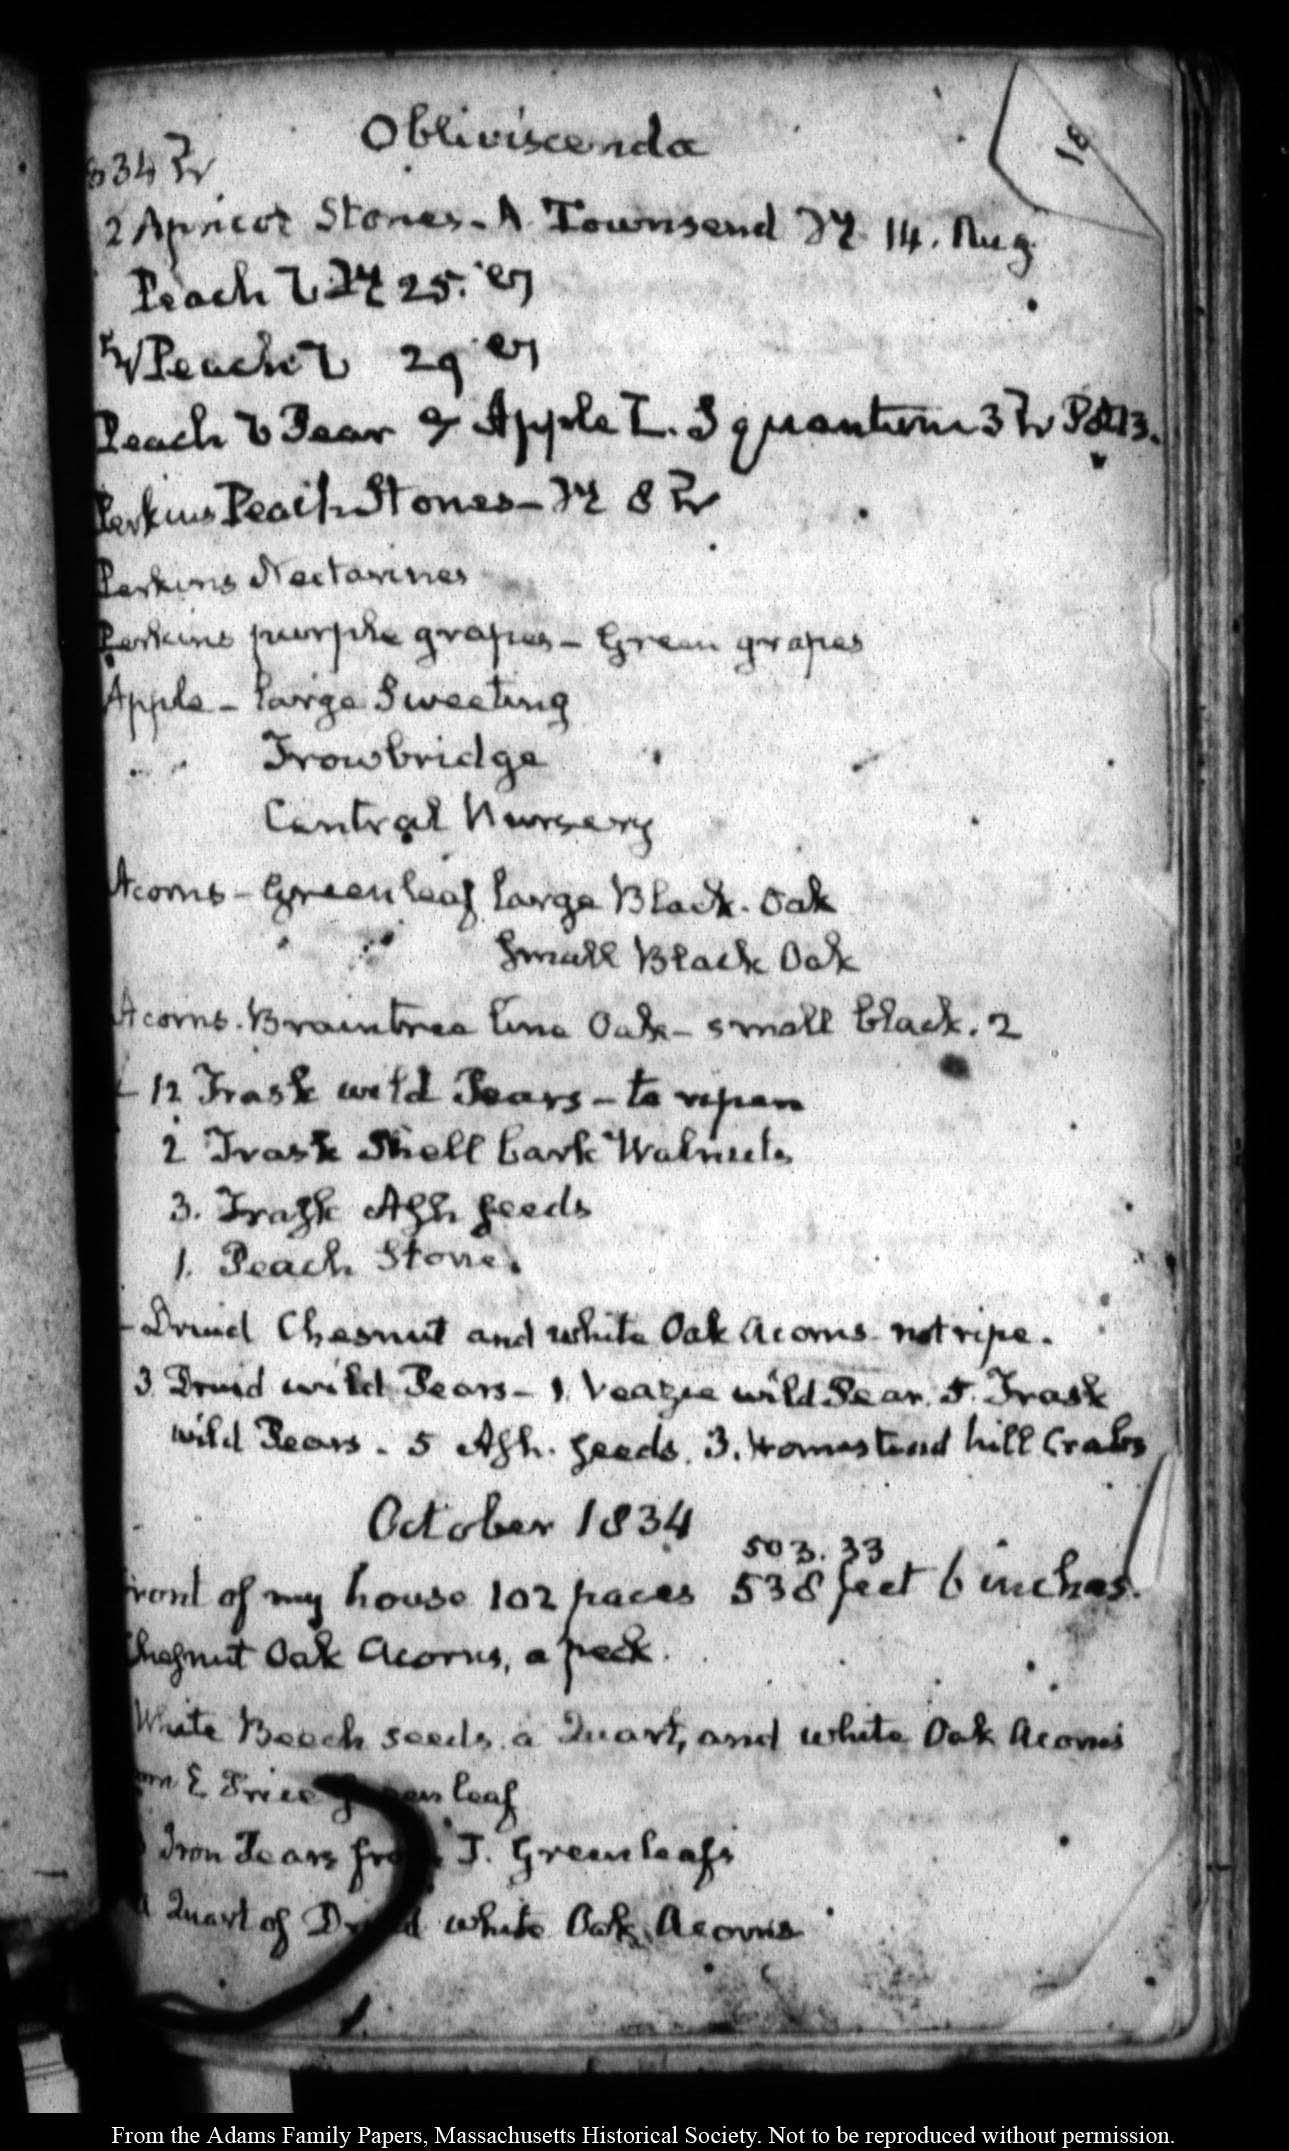 Obliviscenda
18
834
2 Apricot Stones - A. Townsend 14. Aug.
Peach 25.
Peach 29
Peach Pear & Apple T. Squantum 3
Perkins Peach Stones - 8
Perkins Nectarines
Perkins purple grapes - Green grapes
Apple - large Sweeting
Trowbridge
Central Nursery
Acorns - Greenleaf large Black. Oak
" " small Black Oak
Acorns. Braintree line Oak - small black. 2
- 12 Trask wild Pears - to ripen
2 Trask Shell bark Walnuts
3. Trask Ash seeds
1. Peach Stone.
- Druid Chesnut and white Oak Acorns not ripe.
3 Druid wild Pears - 1. Veazie wild Pear. 5. Trask
wild Pears. 5 Ash. seeds. 3. Homestead hill Crabs
October 1834
503. 33
Front of my house 102 paces 538 feet 6 inches.
Chesnut Oak Acorns, a peck.
White Beech seeds. a Quart, and white Oak Acorns
E Price Greenleaf
Iron Pears from T. Greenleafs
a Quart of Druid white Oak Acorns
From the Adams Family Papers, Massachusetts Historical Society. Not to be reproduced without permission.